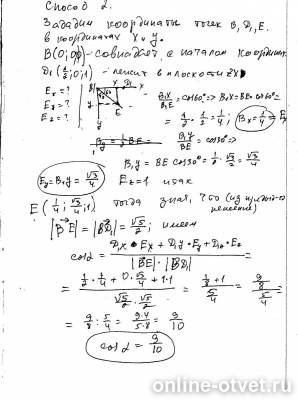 Способ 2.
Зададим координаты точек B, D₁, E.
в координатах X и y.
B(0;0;0) - совпадает с началом координат.
D₁(1/2;0;1) - лежит в плоскости ZX
Eₓ = ?
Ey = ?
E₂ = ?
B₁X/B₁E = cos60° => B₁X = BE·cos60° =
= 1/2 · 1/2 = 1/4; B₁X = 1/4 = Eₓ
B₁y/BE = cos30°
B₁y = BE cos30° = 1/2 · √3/2 = √3/4
Ey = B₁y = √3/4
E₂ = 1 итак
E (1/4; √3/4; 1) тогда зная, что (из
решения)
|BE| = |BD₁| = √5/2; имеем
cos α = D₁x · Ex + D₁y · Ey + D₁z · Ez / |BE| · |BD₁| =
= 1/2 · 1/4 + 0 · √3/4 + 1·1 / √5/2 · √5/2 = 1/8 + 1 / 5/4 = 9/8 / 5/4 =
= 9/8 : 5/4 = 9·4/5·8 = 9/10
cos α = 9/10
online-otvet.ru